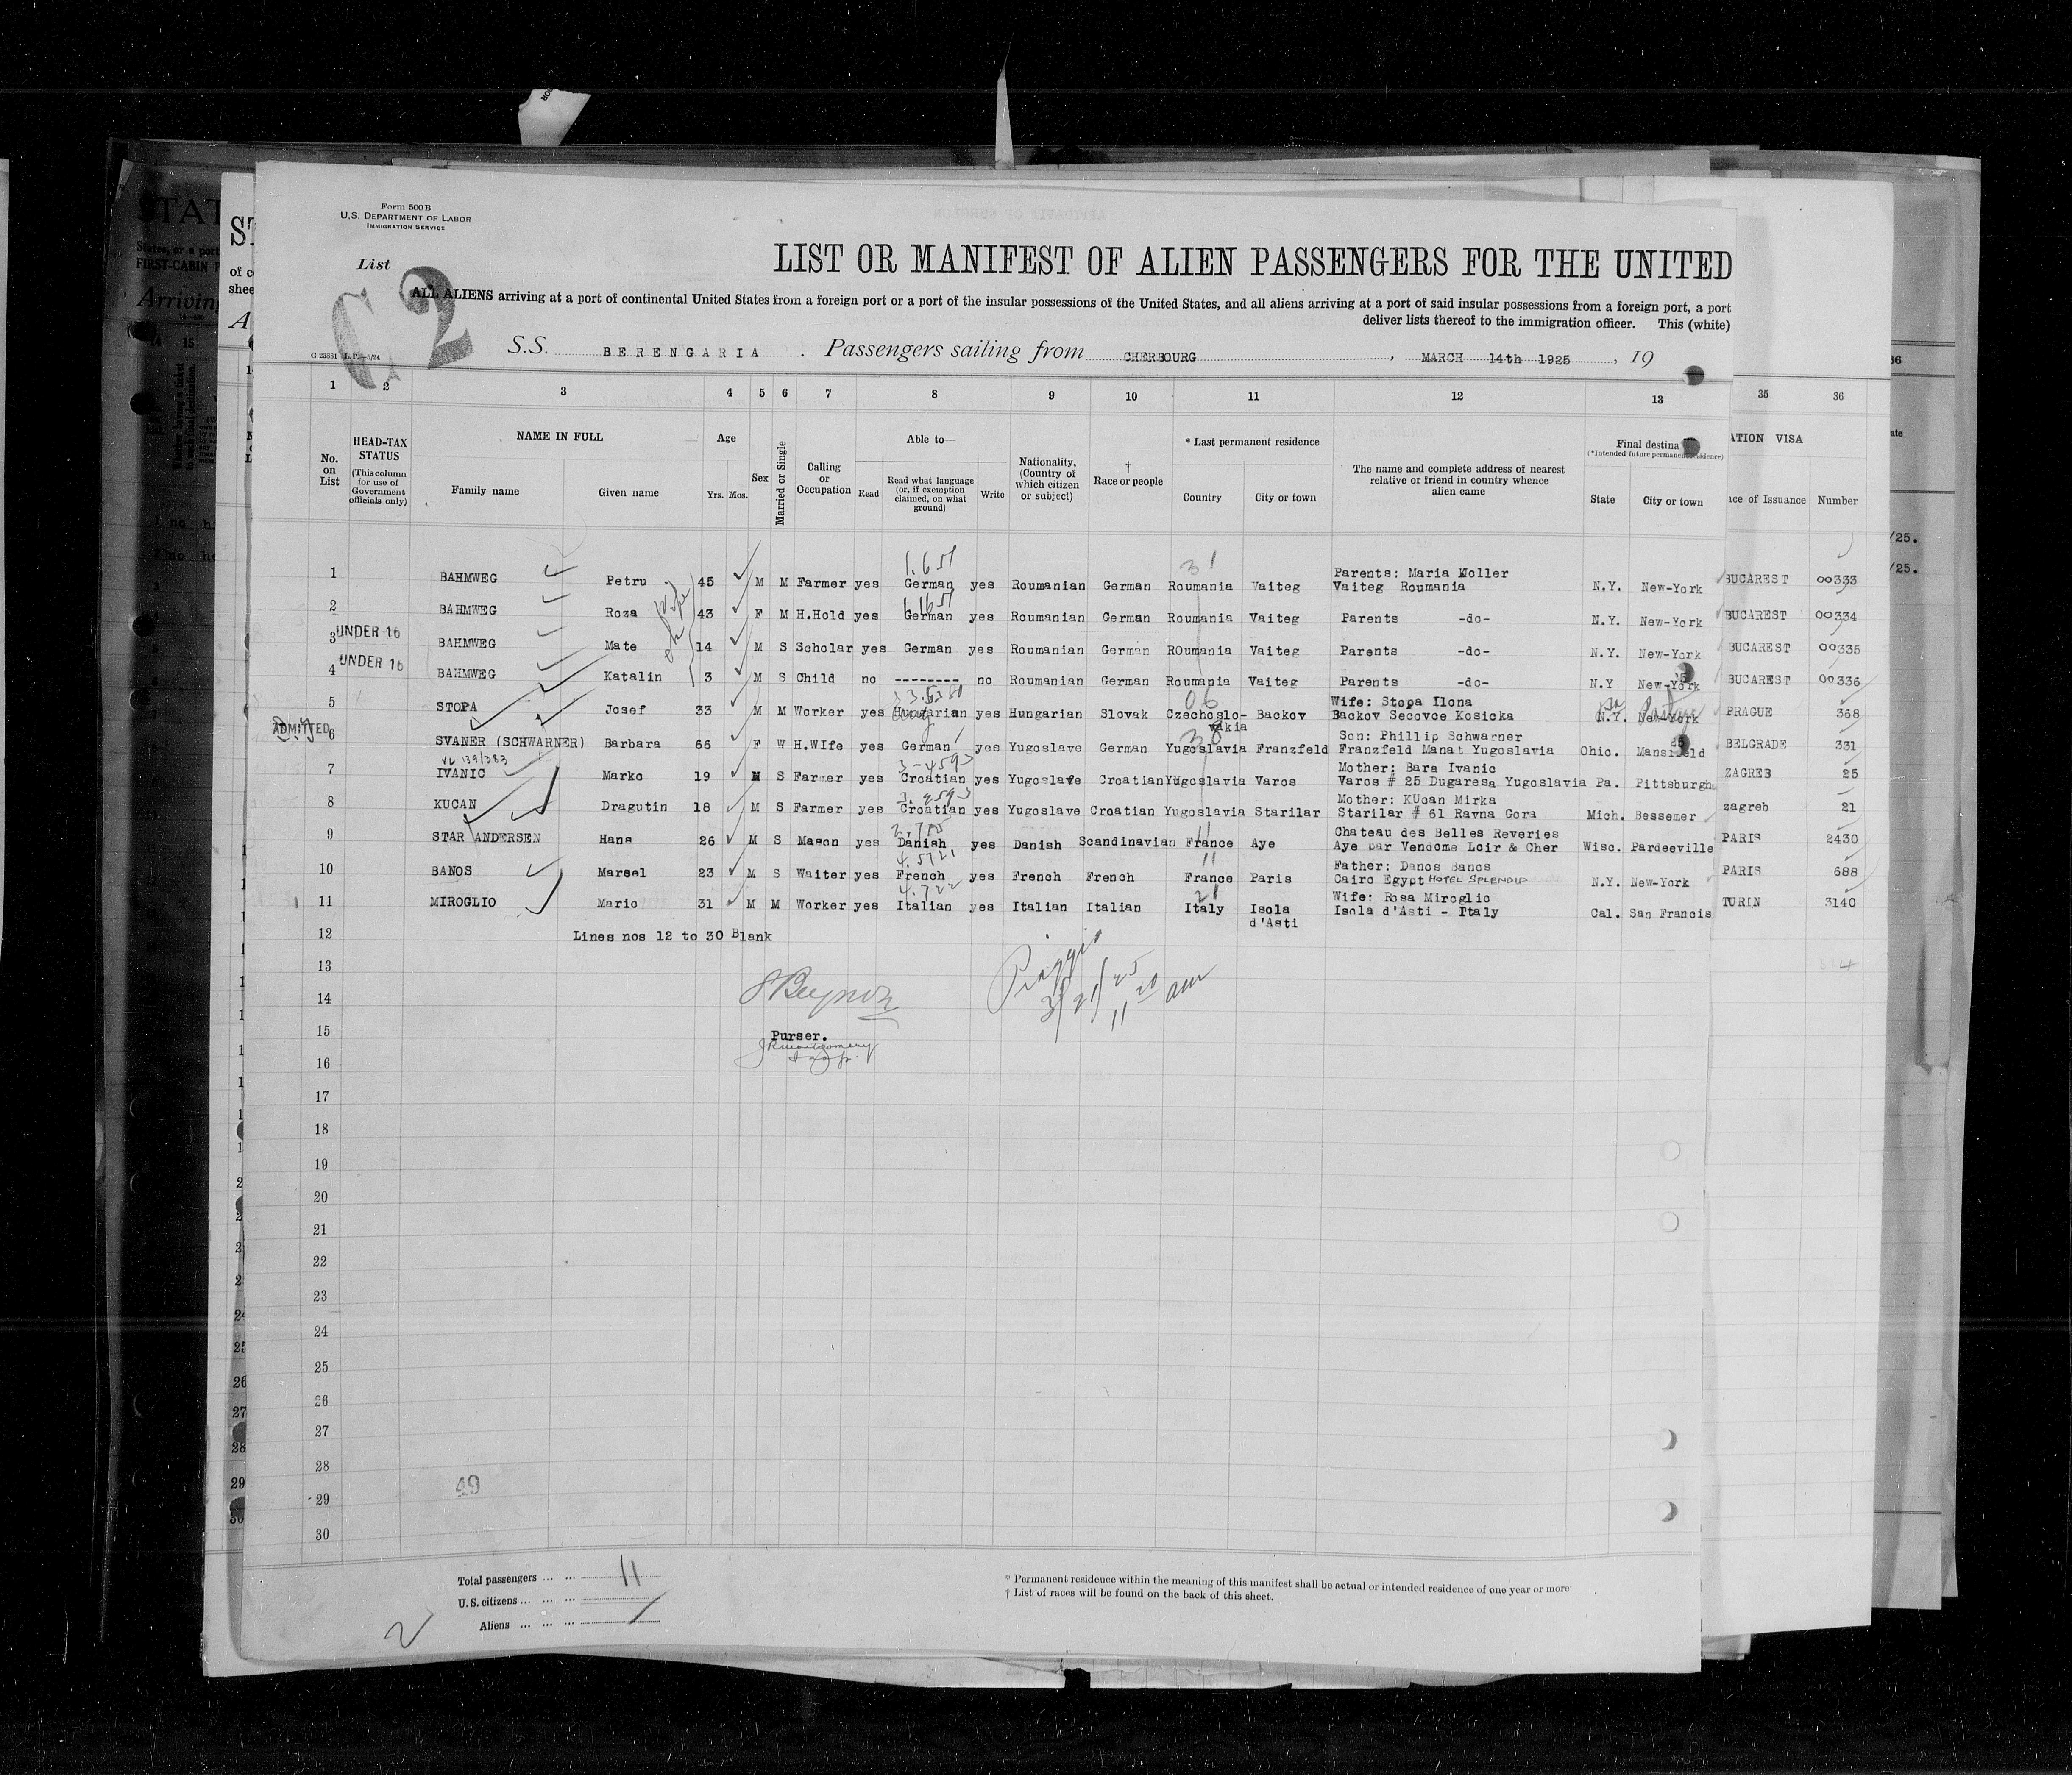 Form 500 B
U.S. DEPARTMENT OF LABOR
IMMIGRATION SERVICE
List
2
LIST OR MANIFEST OF ALIEN PASSENGERS FOR THE UNITED
ALL ALIENS arriving at a port of continental United States from a foreign port or a port of the insular possessions of the United States, and all aliens arriving at a port of said insular possessions from a foreign port, a port
deliver lists thereof to the immigration officer. This (white)
S.S. BERENGARIA . Passengers sailing from CHERBOURG , MARCH 14th 1925 , 19
1 2 3 4 5 6 7 8 9 10 11 12 13 35 36
No. on List
HEAD-TAX STATUS
(This column for use of Government officials only)
NAME IN FULL
Family name Given name
Age
Yrs. Mos.
Sex
Married or Single
Calling or Occupation
Able to—
Read
Read what language (or, if exemption claimed, on what ground)
Write
Nationality, (Country of which citizen or subject)
† Race or people
* Last permanent residence
Country City or town
The name and complete address of nearest relative or friend in country whence alien came
Final destina
(*Intended future permanent residence)
State City or town
ATION VISA
ace of Issuance Number
1 BAHMWEG Petru 45 M M Farmer yes German yes Roumanian German Roumania Vaiteg Parents: Maria Koller
Vaiteg Roumania N.Y. New-York BUCAREST 00333
2 BAHMWEG Roza 43 F M H.Hold yes German yes Roumanian German Roumania Vaiteg Parents -do- N.Y. New-York BUCAREST 00334
3 UNDER 16 BAHMWEG Mate 14 M S Scholar yes German yes Roumanian German ROumania Vaiteg Parents -do- N.Y. New-York BUCAREST 00335
4 UNDER 16 BAHMWEG Katalin 3 M S Child no -------- no Roumanian German Roumania Vaiteg Parents -do- N.Y New-York BUCAREST 00336
5 STOPA Josef 33 M M Worker yes Hungarian yes Hungarian Slovak Czechoslo-vakia Backov Wife: Stopa Ilona
Backov Secovce Kosicka N.Y. New-York PRAGUE 368
ADMITTED 6 SVANER (SCHWARNER) Barbara 66 F W H.WIfe yes German yes Yugoslave German Yugoslavia Franzfeld Son: Phillip Schwarner
Franzfeld Manat Yugoslavia Ohio. Mansfield BELGRADE 331
7 IVANIC Marko 19 M S Farmer yes Croatian yes Yugoslave Croatian Yugoslavia Varos Mother: Bara Ivanic
Varos # 25 Dugaresa Yugoslavia Pa. Pittsburgh ZAGREB 25
8 KUCAN Dragutin 18 M S Farmer yes Croatian yes Yugoslave Croatian Yugoslavia Starilar Mother: KUcan Mirka
Starilar # 61 Ravna Gora Mich. Bessemer zagreb 21
9 STAR ANDERSEN Hans 26 M S Mason yes Danish yes Danish Scandinavian France Aye Chateau des Belles Reveries
Aye par Vendome Loir & Cher Wisc. Pardeeville PARIS 2430
10 BANOS Marcel 23 M S Waiter yes French yes French French France Paris Father: Danos Banos
Cairo Egypt HOTEL SPLENDID N.Y. New-York PARIS 688
11 MIROGLIO Mario 31 M M Worker yes Italian yes Italian Italian Italy Isola d'Asti Wife: Rosa Miroglio
Isola d'Asti - Italy Cal. San Francis TURIN 3140
12 Lines nos 12 to 30 Blank
13
14
15 Purser.
16
17
18
19
20
21
22
23
24
25
26
27
28
29
30
49
Total passengers ... ... 11
U.S. citizens ... ... ...
Aliens ... ... ...
* Permanent residence within the meaning of this manifest shall be actual or intended residence of one year or more
† List of races will be found on the back of this sheet.